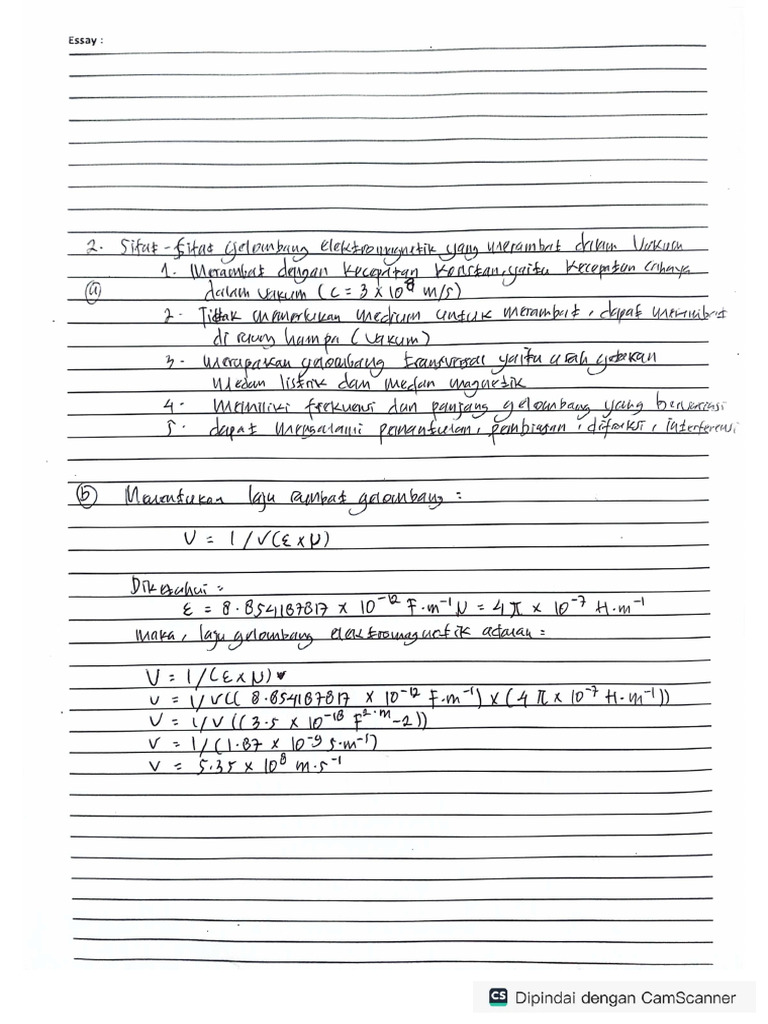 Essay :
2. Sifat-sifat Gelombang elektromagnetik yang merambat dalam Vakum
1. Merambat dengan kecepatan konstan, yaitu kecepatan cahaya
(a) dalam vakum (c = 3 x 10⁸ m/s)
2. Tidak memerlukan medium untuk merambat, dapat merambat
di ruang hampa (vakum)
3. merupakan gelombang transversal yaitu arah getaran
medan listrik dan medan magnetik
4. memiliki frekuensi dan panjang gelombang yang bervariasi
5. dapat mengalami pemantulan, pembiasan, difraksi, interferensi
(b) Menentukan laju rambat gelombang :
V = 1/√(ε x μ)
Diketahui :
ε = 8.854187817 x 10⁻¹² F.m⁻¹ μ = 4π x 10⁻⁷ H.m⁻¹
maka, laju gelombang elektromagnetik adalah :
V = 1/(ε x μ)
V = 1/√(( 8.854187817 x 10⁻¹² F.m⁻¹) x (4π x 10⁻⁷ H.m⁻¹))
V = 1/√((3.5 x 10⁻¹⁸ F².m-2))
V = 1/(1.87 x 10⁻⁹ s.m⁻¹)
V = 5.35 x 10⁸ m.s⁻¹
CS Dipindai dengan CamScanner